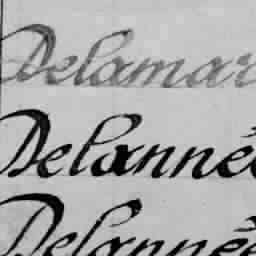 Delamar
Delannée
Delannée